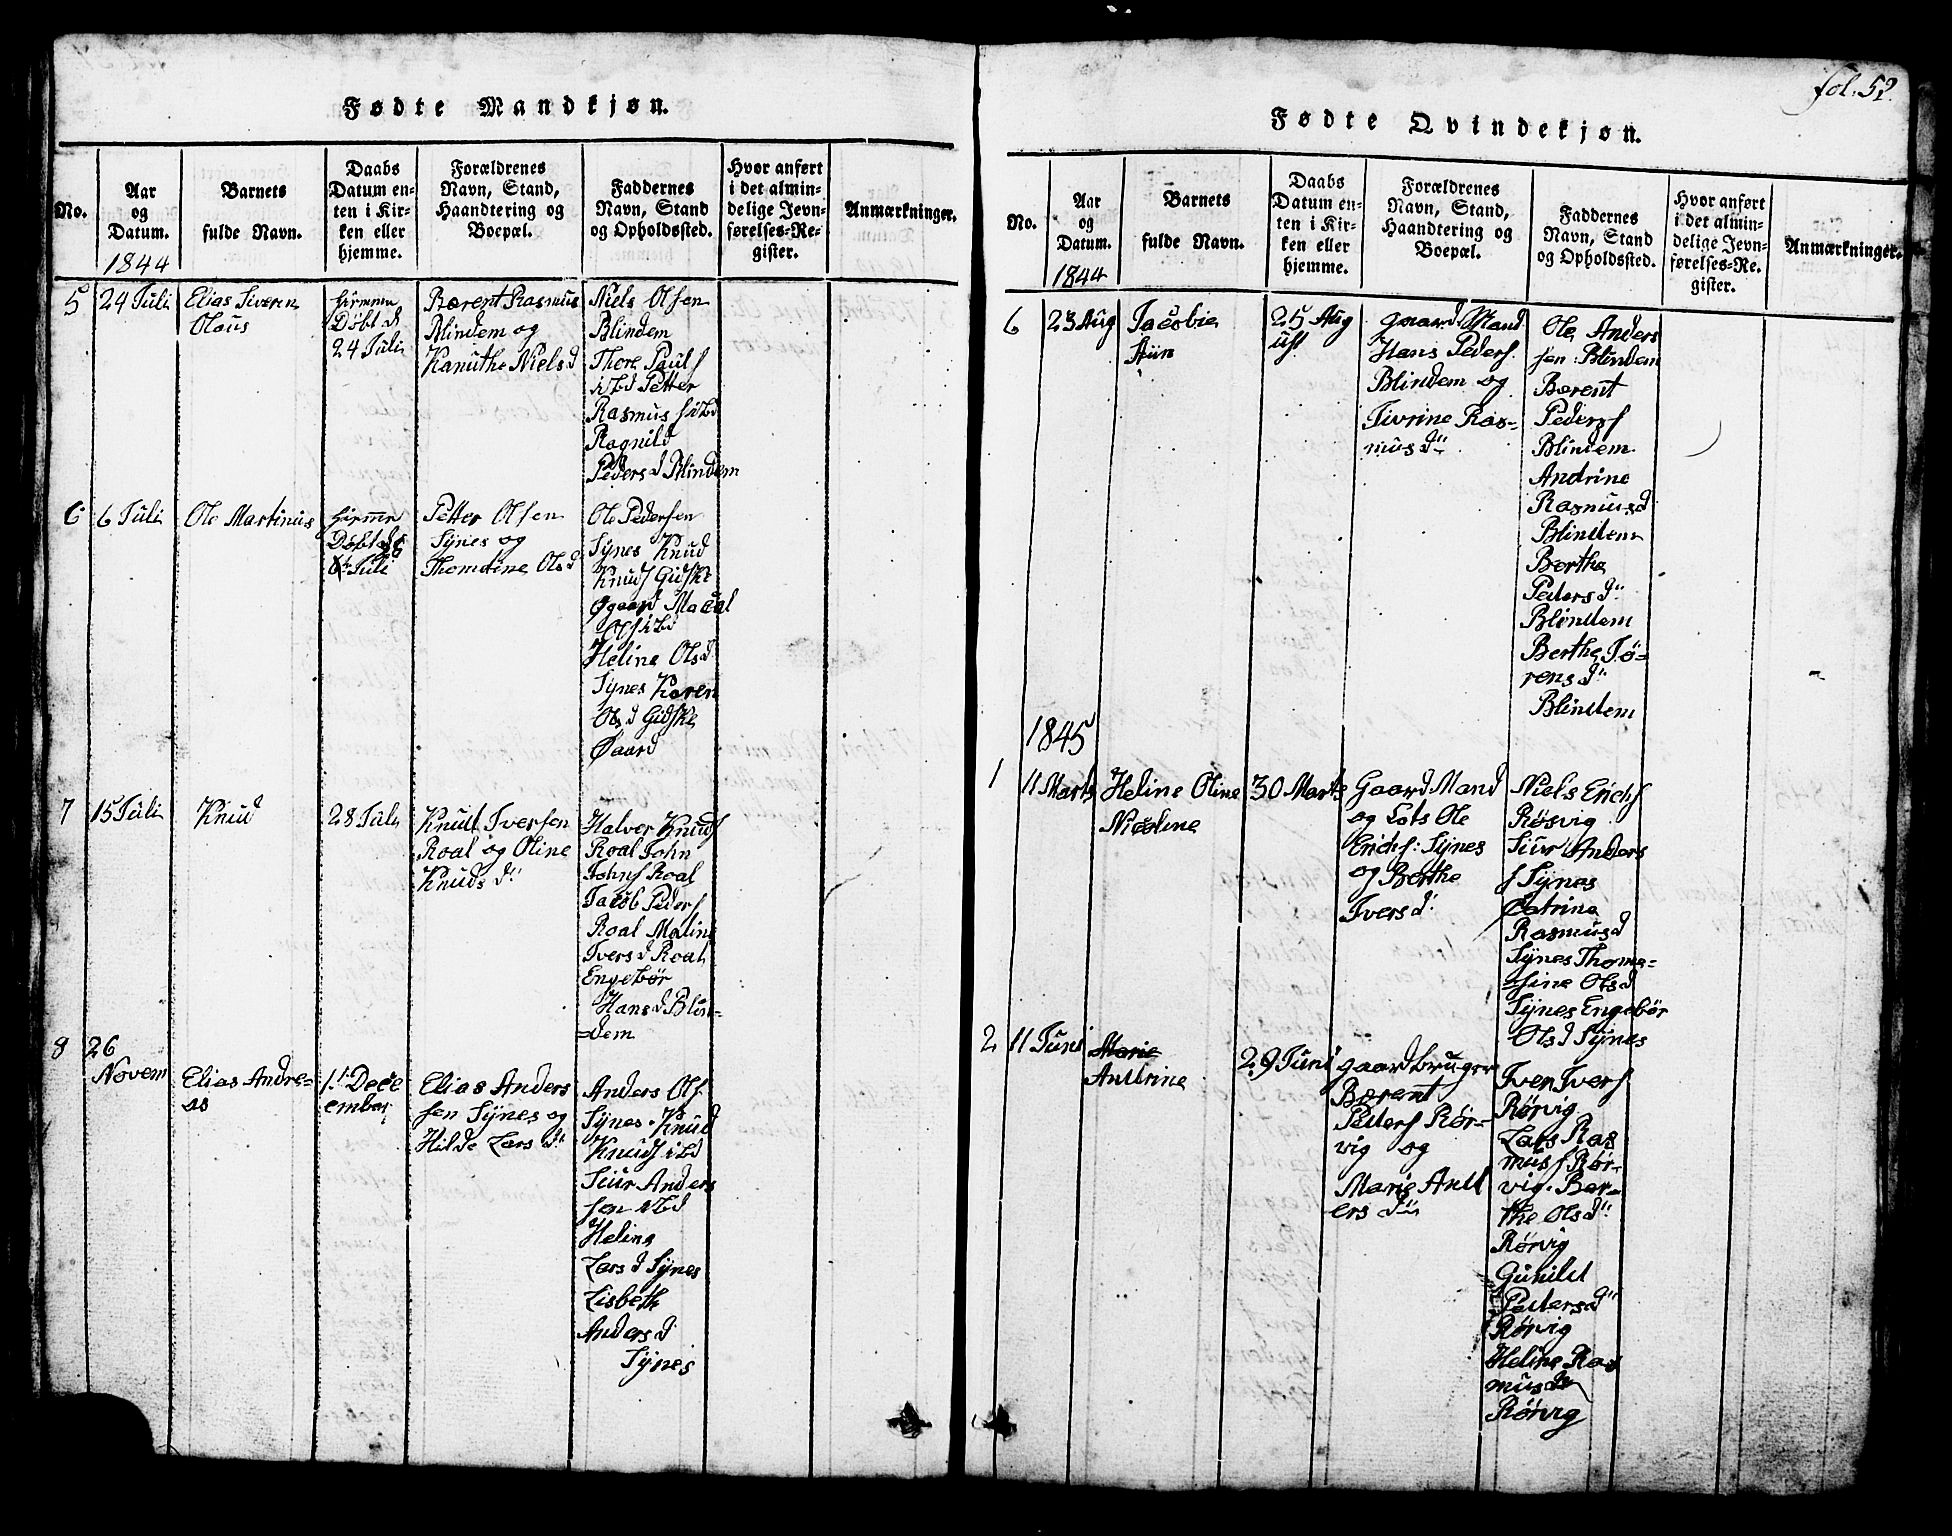 fol. 52.
Fødte Mandkjøn.
No.
Aar
og
Datum.
1844
Barnets
fulde Navn.
Daabs
Datum en-
ten i Kir-
ken eller
hjemme.
Forældrenes
Navn, Stand,
Haandtering og
Boepæl.
Faddernes
Navn, Stand
og Opholdssted.
Hvor anført
i det almin-
delige Jevn-
førelses-Re-
gister.
Anmærkninger.
5
24 Juli
Elias Siveren
Olaus
Hjemme
Døbt d
24 Juli
Bærent Rasmus
Blindem og
Kanuthe Nielsd
Niels Olsen
Blindem
Thore Pauls
ibd Petter
Rasmus s ibd
Ragnild
Pedersd Blindem
6
6 Juli
Ole Martinus
Hjemme
Døbt d
Juli
Petter Olsen
Synes og
Thomasine Olsd
Ole Pedersen
Synes Knud
Knuds Gidske
Øgaard
Ols ibd
Heline Olsd
Synes Karen
Olsd Gidske
Øaard
7
15 Juli
Knud
28 Juli
Knud Iversen
Roal og Oline
Knuds d:
Halver Knuds
Roal John
Johns Roal
Jacob Peders
Roal Maline
Iversd Roal
Engebør
Hansd Blin-
=dem
8
26
Novem
Elias Andre-
as
1st Dece
ember
Elias Anders
sen Synes og
Hilde Lars d:
Anders Ols
Synes. Knud
Knuds ibd
Siur Anders
sen ibd
Heline
Lars d Synes
Lisbeth
Anders d
Synes
Fødte Qvindekjøn.
No.
Aar
og
Datum.
1844
Barnets
fulde Navn.
Daabs
Datum en-
ten i Kir-
ken eller
hjemme.
Forældrenes
Navn, Stand,
Haandtering og
Boepæl.
Faddernes
Navn, Stand
og Opholdssted.
Hvor anført
i det almin-
delige Jevn-
førelses-Re-
gister.
Anmærkninger.
6
23 Aug
Jacobie
25 Aug
ust
gaard Mand
Hans Peders.
Blindem og
Sivrine Ras-
mus d:
Ole Anders
sen: Blindem
Berent
Peders
Blindem
Andrine
Rasmusd
Blindem
Berthe
Peders d:
Blindem
Berthe Jø-
rens d:
Blindem
1845
1
11 Marts
Heline Oline
Nicoline
30 Marts
Gaard Mand
og Lots Ole
Erichs: Synes
og Berthe
Ivers d:
Niels Erichs
Røsvig
Siur Anders
s Synes
Catrine
Rasmusd
Synes Thoma-
=sine Olsd
Synes Engebør
Olsd Synes
2
11 Juni
Marie
Andrine
29 Juni
gaardbruger
Bærent
Peders Rør-
vig og
Marie And
ers d:
Iver Ivers
Rørvig
Lars Ras
mus s Rør-
vig. Ber-
the Ols d:
Rørvig
Gunild
Peders d:
Rørvig
Heline Ras
mus d
Rørvig